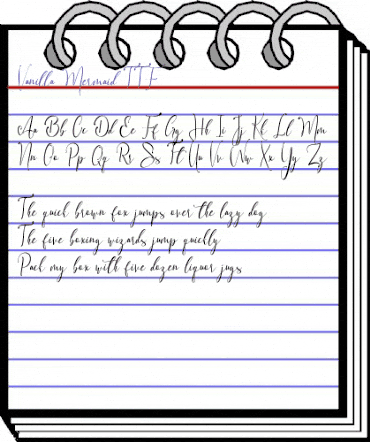 Vanilla Mermaid TTF
Aa Bb Cc Dd Ee Ff Gg Hh Ii Jj Kk Ll Mm
Nn Oo Pp Qq Rr Ss Tt Uu Vv Ww Xx Yy Zz
The quick brown fox jumps over the lazy dog
The five boxing wizards jump quickly
Pack my box with five dozen liquor jugs